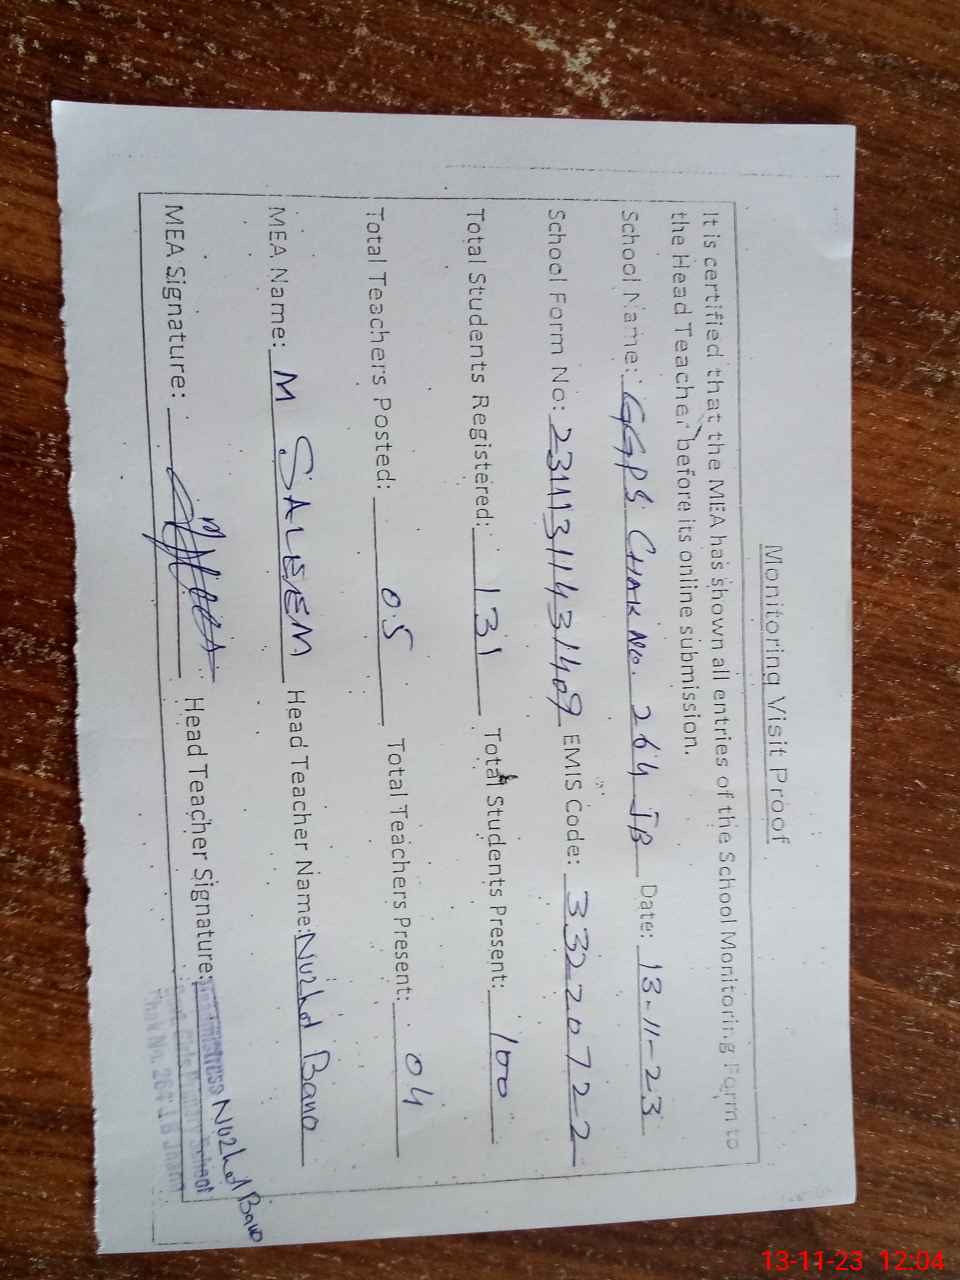 Monitoring Visit Proof
It is certified that the MEA has shown all entries of the School Monitoring Form to
the Head Teacher before its online submission.
School Name: GGPS CHAK NO. 264 JB Date: 13-11-23
School Form No: 23111311431409 EMIS Code: 3320722
Total Students Registered: 131 Total Students Present: 100
Total Teachers Posted: 05 Total Teachers Present: 04
MEA Name: M SALEEM Head Teacher Name: Nuzhd Bano
MEA Signature: Head Teacher Signature: Nuzhd Bano
Headmistress
Govt. Girls Primary School
Chak No. 264 J B Jhang
13-11-23 12:04